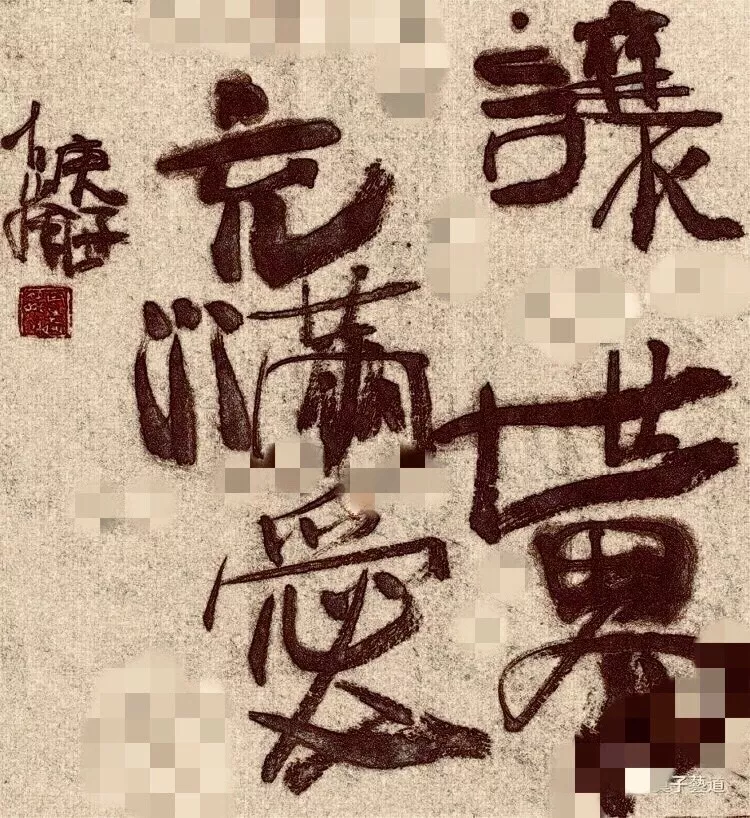 讓世界
充滿愛
庚子
子藝道